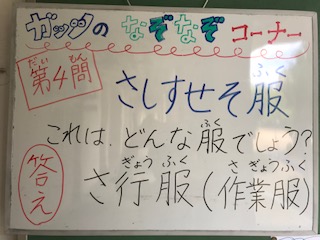 ガッツのなぞなぞコーナー
第4問
だいもん
さしすせそ服
ふく
これは、どんな服でしょう?
ふく
答え
さ行服(作業服)
ぎょうふく さぎょうふく